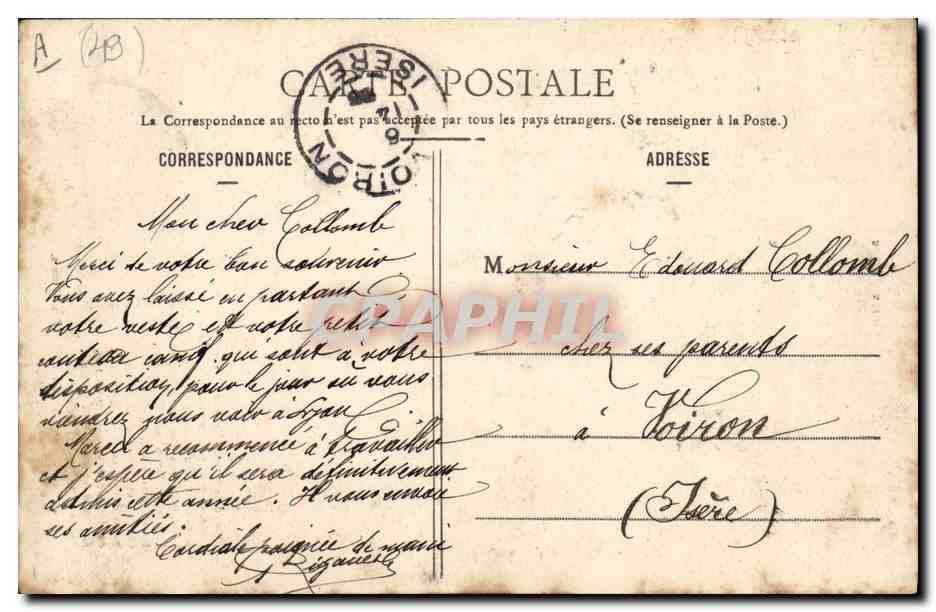 A (43)
CARTE POSTALE
VOIRON ISÈRE
La Correspondance au recto n'est pas acceptée par tous les pays étrangers. (Se renseigner à la Poste.)
CORRESPONDANCE
Mon cher Collomb
Merci de votre bon souvenir
Vous avez laissé en partant
votre veste et votre petit
couteau canif qui sont à votre
disposition, pour le jour où vous
viendrez nous voir à Lyon.
Marcel a recommencé à travailler
et j'espère qu'il sera définitivement
admis cette année. Il vous envoie
ses amitiés.
Cordiale poignée de main
ADRESSE
Monsieur Edouard Collomb
chez ses parents
à Voiron
(Isère)
CARTE GRAPHIL